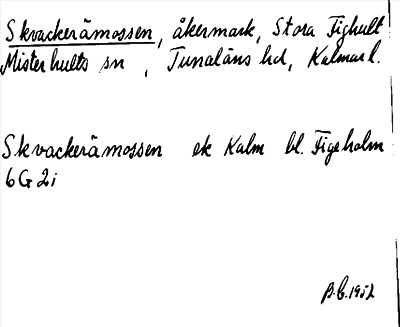 Skvackerämossen, åkermark, Stora Fighult
Misterhults sn, Tunaläns hd, Kalmar l.
Skvackerämossen ek Kalm bl. Figeholm
6G2i
B.G. 1952